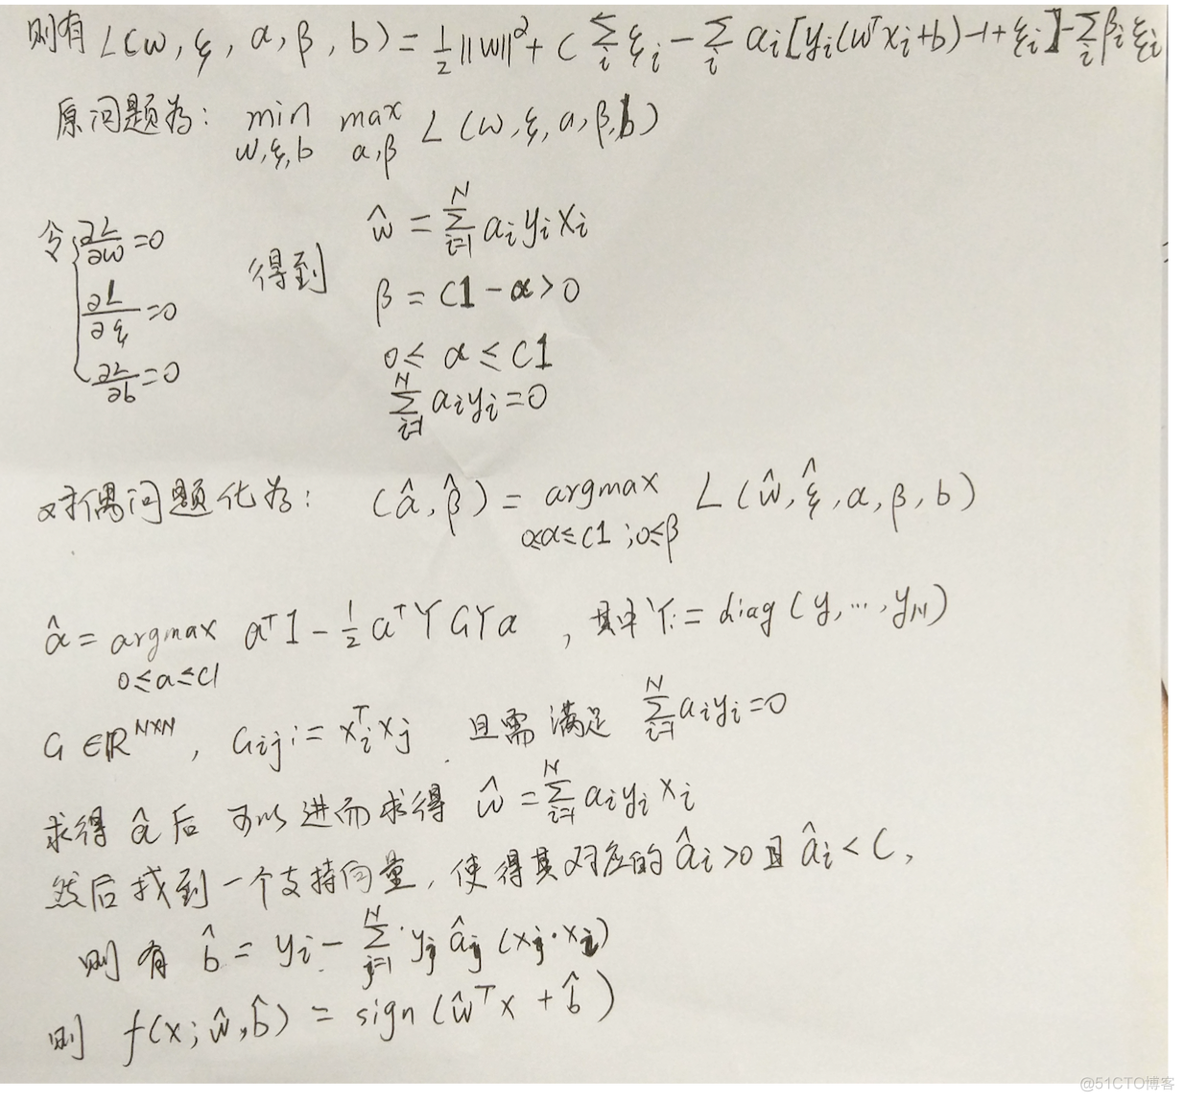 则有 L(w, ξ, α, β, b) = 1/2 ||w||² + C Σ_i ξ_i − Σ_i α_i [y_i(wᵀx_i+b) −1+ ξ_i] − Σ_i β_i ξ_i
原问题为: min_{w,ξ,b} max_{α,β} L(w, ξ, α, β, b)
令 { ∂L/∂w = 0
∂L/∂ξ = 0
∂L/∂b = 0
得到 ŵ = Σ_{i=1}^N α_i y_i x_i
β = C1 − α > 0
0 ≤ α ≤ C1
Σ_{i=1}^N α_i y_i = 0
对偶问题化为: (α̂, β̂) = argmax_{0≤α≤C1; 0≤β} L(ŵ, ξ̂, α, β, b)
α̂ = argmax_{0≤α≤C1} αᵀ1 − 1/2 αᵀYGYα , 其中 Y := diag(y, ⋯, y_N)
G ∈ ℝ^{N×N}, G_ij := x_iᵀx_j 且需满足 Σ_{i=1}^N α_i y_i = 0
求得 α̂ 后 可以进而求得 ŵ = Σ_{i=1}^N α_i y_i x_i
然后找到一个支持向量, 使得其对应的 α̂_i > 0 且 α̂_i < C,
则有 b̂ = y_i − Σ_{j=1}^N y_j α̂_j (x_j · x_i)
则 f(x; ŵ, b̂) = sign(ŵᵀx + b̂)
@51CTO博客